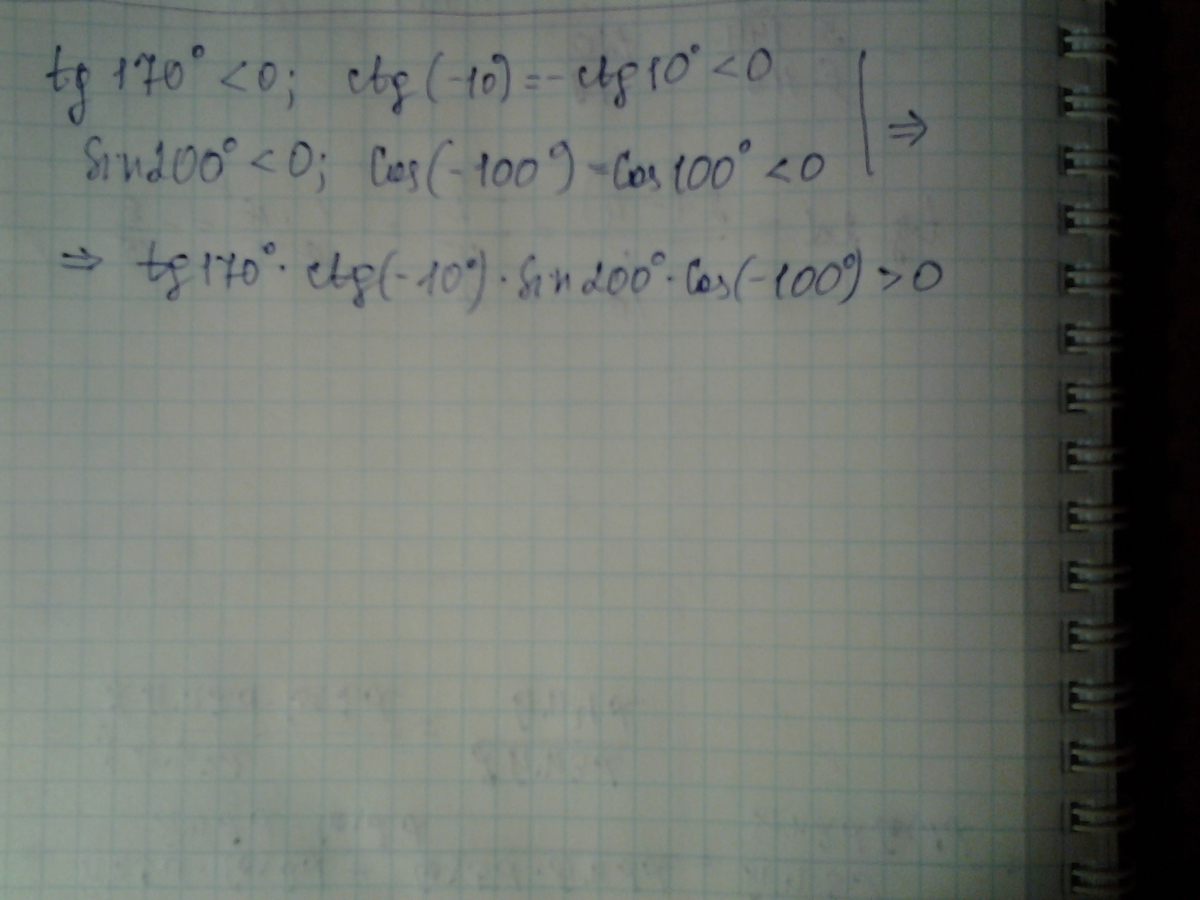 tg 170° < 0; ctg (-10°) = - ctg 10° < 0
Sin 200° < 0; Cos(-100°) = Cos 100° < 0 | ⇒
⇒ tg 170° · ctg(-10°) · Sin 200° · Cos(-100°) > 0